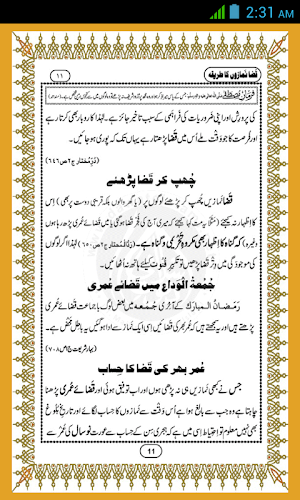 2:31 AM
۱۱
قضا نمازوں کا طریقہ
کی پرورش اور اپنی ضروریات کی فراہمی کے سبب تاخیر جائز ہے۔ لہٰذا کاروبار بھی کرتا رہے اور
فرصت کا جو وقت ملے اُس میں قضا پڑھتا رہے یہاں تک کہ پوری ہو جائیں۔
(دُرِّمُختار ج۲ص۶۴۶)
چُھپ کر قضا پڑھئے
قضا نمازیں چھپ کر پڑھئے لوگوں پر (یا گھر والوں بلکہ قریبی دوست پر بھی) اِس
کا اظہار نہ کیجئے (مثلاً یہ مت کہا کیجئے کہ میری آج کی فجر قضا ہو گئی یا میں قضائے عمری پڑھ رہا ہوں
وغیرہ) کہ گناہ کا اظہار بھی مکروہِ تحریمی و گناہ ہے۔ (رَدُّالْمُحتار ج۲ص۶۵۰) لہٰذا اگر لوگوں
کی موجودگی میں وتر قضا پڑھیں تو تکبیرِ قُنوت کیلئے ہاتھ نہ اُٹھائیں۔
جُمُعَۃُ الْوَداع میں قضائے عُمری
رَمَضانُ الْمبارَک کے آخری جُمُعہ میں بعض لوگ باجماعت قضائے عمری
پڑھتے ہیں اور یہ سمجھتے ہیں کہ عمر بھر کی قضائیں اِسی ایک نماز سے ادا ہو گئیں یہ باطل محض ہے۔
(بہارِ شریعت ج۱ص۷۰۸)
عُمر بھر کی قضا کا حساب
جس نے کبھی نمازیں ہی نہ پڑھی ہوں اور اب توفیق ہوئی اور قضائے عُمری پڑھنا
چاہتا ہے وہ جب سے بالغ ہوا ہے اُس وَقت سے نمازوں کا حساب لگائے اور تاریخِ بُلُوغ
بھی نہیں معلوم تو اِحتیاط اِسی میں ہے کہ ہجری سِن کے حساب سے عورت نو سال کی عُمْر سے
11